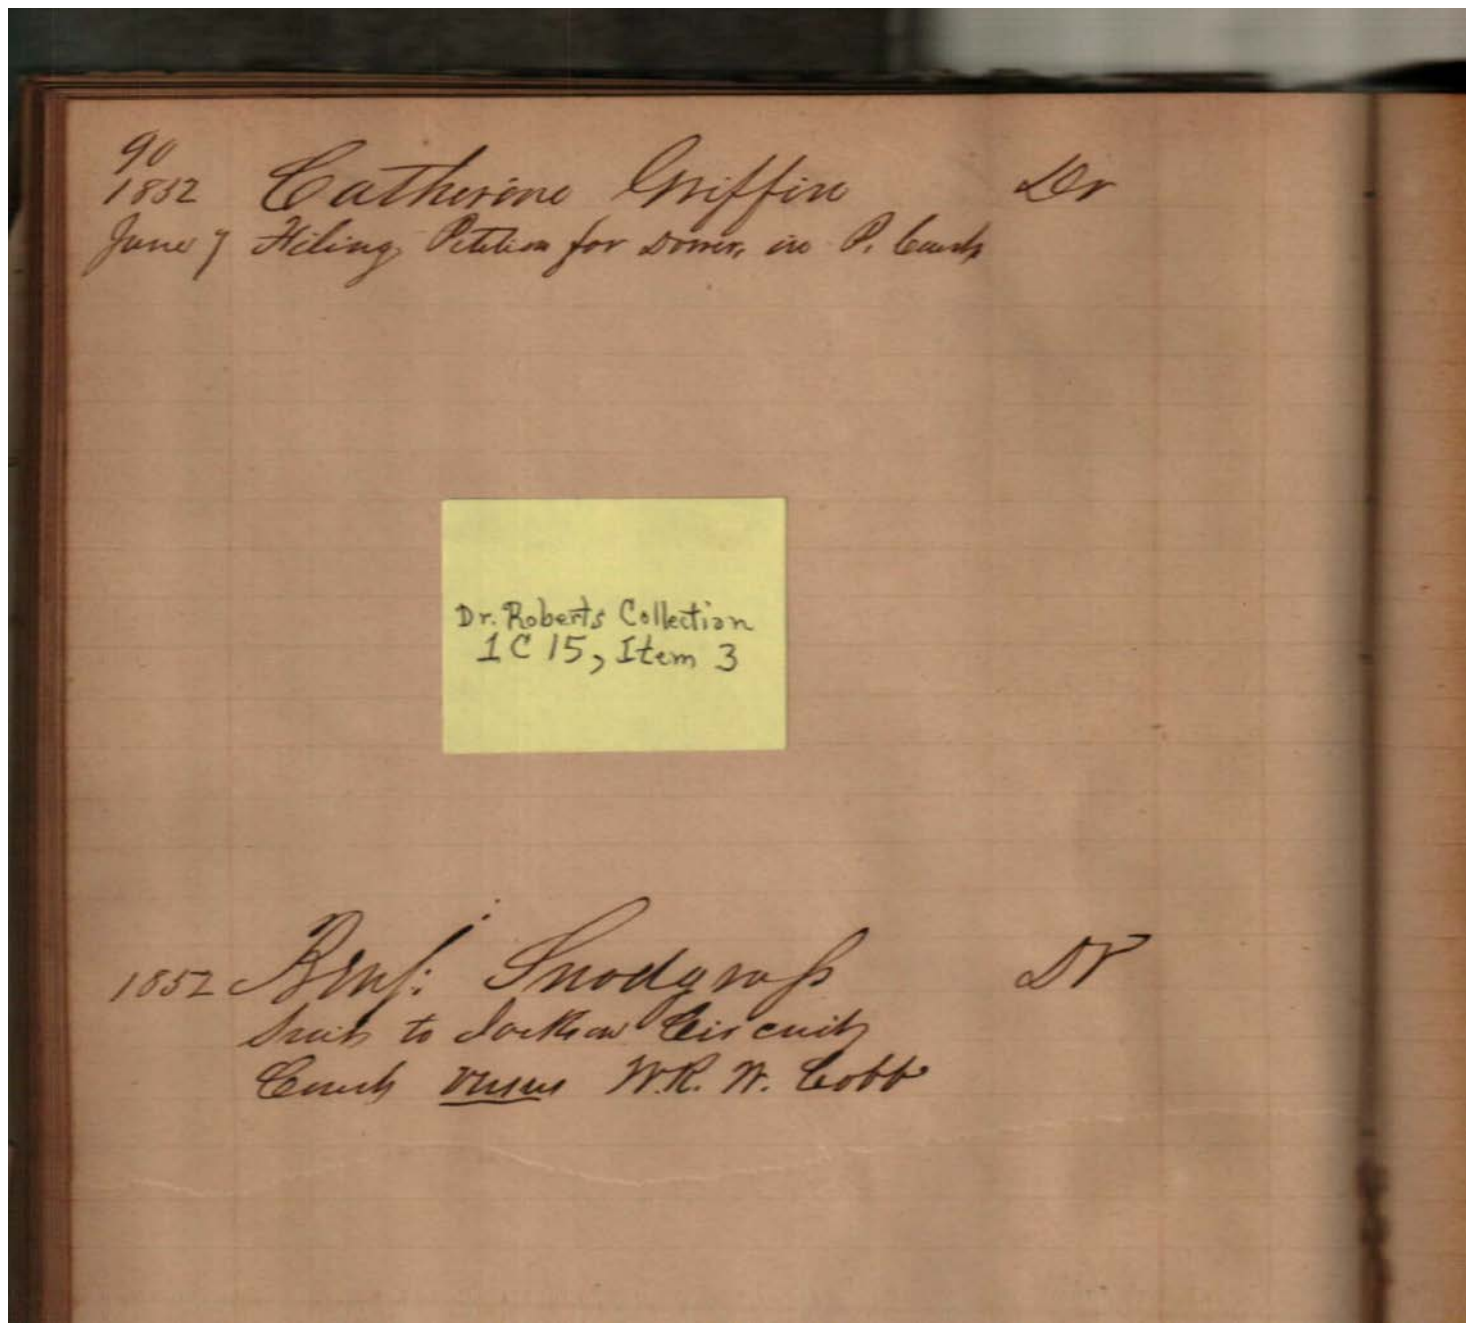 90
1852 Catherine Griffin Dr
June 7 Filing Petition for Dower, in P. Court
Dr. Roberts Collection
1C 15, Item 3
1852 Benj: Snodgrass Dr
Suit to Jackson Circuit
Court versus W. R. W. Cobb